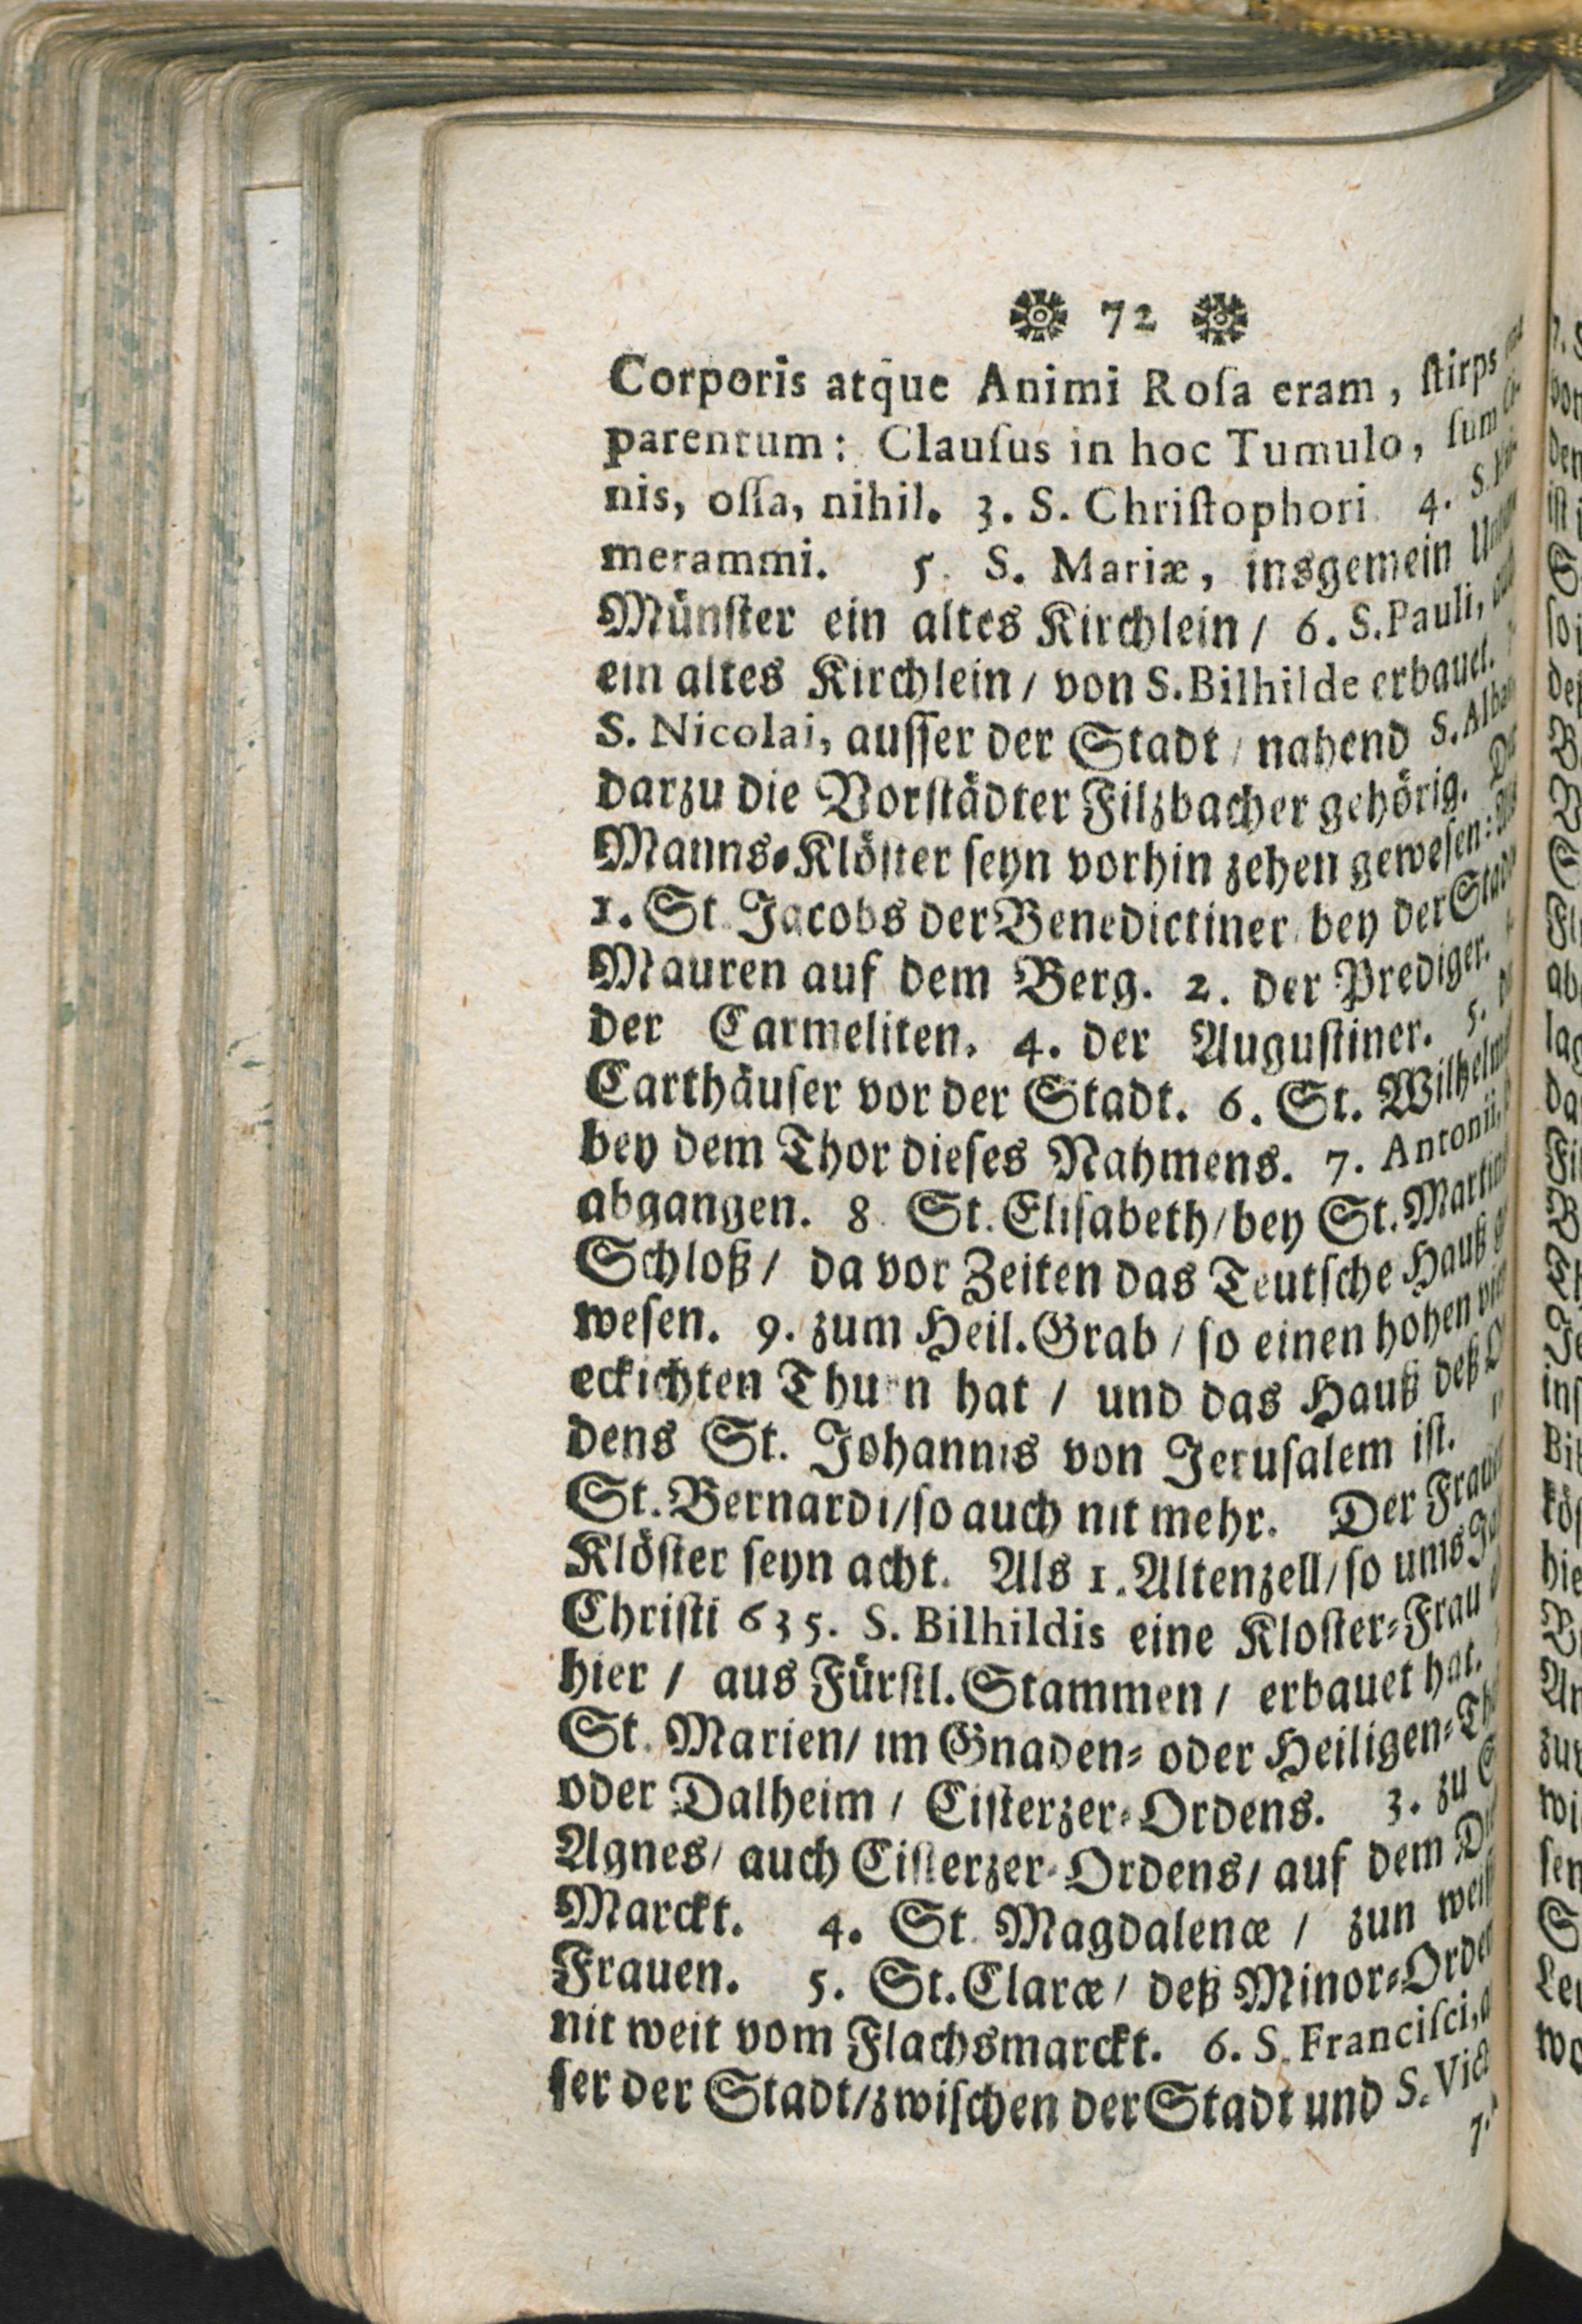 72
Corporis atque Animi Roſa eram, ſtirps
parentum: Clauſus in hoc Tumulo, ſum
nis, oſſa, nihil. 3. S. Chriſtophori 4. S.
merammi. 5. S. Mariæ, insgemein
Münſter ein altes Kirchlein / 6. S. Pauli,
ein altes Kirchlein / von S. Bilhilde erbauet.
S. Nicolai, auſſer der Stadt / nahend S. Alban
darzu die Vorſtädter Filzbacher gehörig.
Manns-Klöſter ſeyn vorhin zehen geweſen:
1. St. Jacobs der Benedictiner bey der Stadt
Mauren auf dem Berg. 2. der Prediger.
der Carmeliten. 4. der Auguſtiner. 5.
Carthäuſer vor der Stadt. 6. St. Wilhelm
bey dem Thor dieſes Nahmens. 7. Antonii,
abgangen. 8. St. Eliſabeth / bey St. Martins
Schloß / da vor Zeiten das Teutſche Hauß
weſen. 9. zum Heil. Grab / ſo einen hohen vier
eckichten Thurn hat / und das Hauß deß
dens St. Johannis von Jeruſalem iſt.
St. Bernardi / ſo auch nit mehr. Der Frauen
Klöſter ſeyn acht. Als 1. Altenzell / ſo ums
Chriſti 635. S. Bilhildis eine Kloſter-Frau
hier / aus Fürſtl. Stammen / erbauet hat.
St. Marien / im Gnaden- oder Heiligen-
oder Dalheim / Ciſterzer-Ordens. 3. zu
Agnes / auch Ciſterzer-Ordens / auf dem
Marckt. 4. St. Magdalenæ / zun
Frauen. 5. St. Claræ / deß Minor-Orden
nit weit vom Flachsmarckt. 6. S. Franciſci,
ſer der Stadt / zwiſchen der Stadt und S. Vict
7.